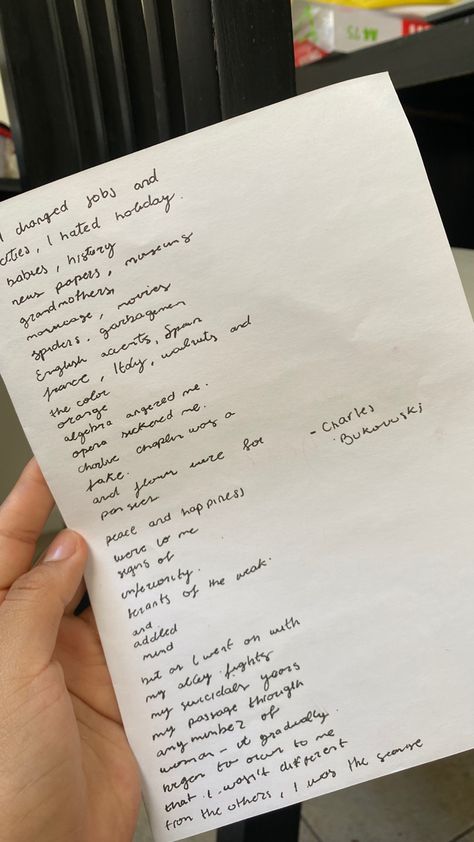 I changed jobs and
cities, I hated holiday.
babies, history
news papers, museums
grandmothers,
marriage, movies
spiders, garbagemen
English accents, Spain
france, Italy, walnuts and
the color
orange
algebra angered me.
opera sickened me.
charlie chaplin was a
fake.
and flowers were for
pansies
- Charles
Bukowski
peace and happiness
were to me
signs of
inferiority.
tenants of the weak.
and
addled
mind
but as I went on with
my alley fights
my suicidals years
my passage through
any number of
woman - it gradually
began to occur to me
that I wasn't different
from the others, I was the